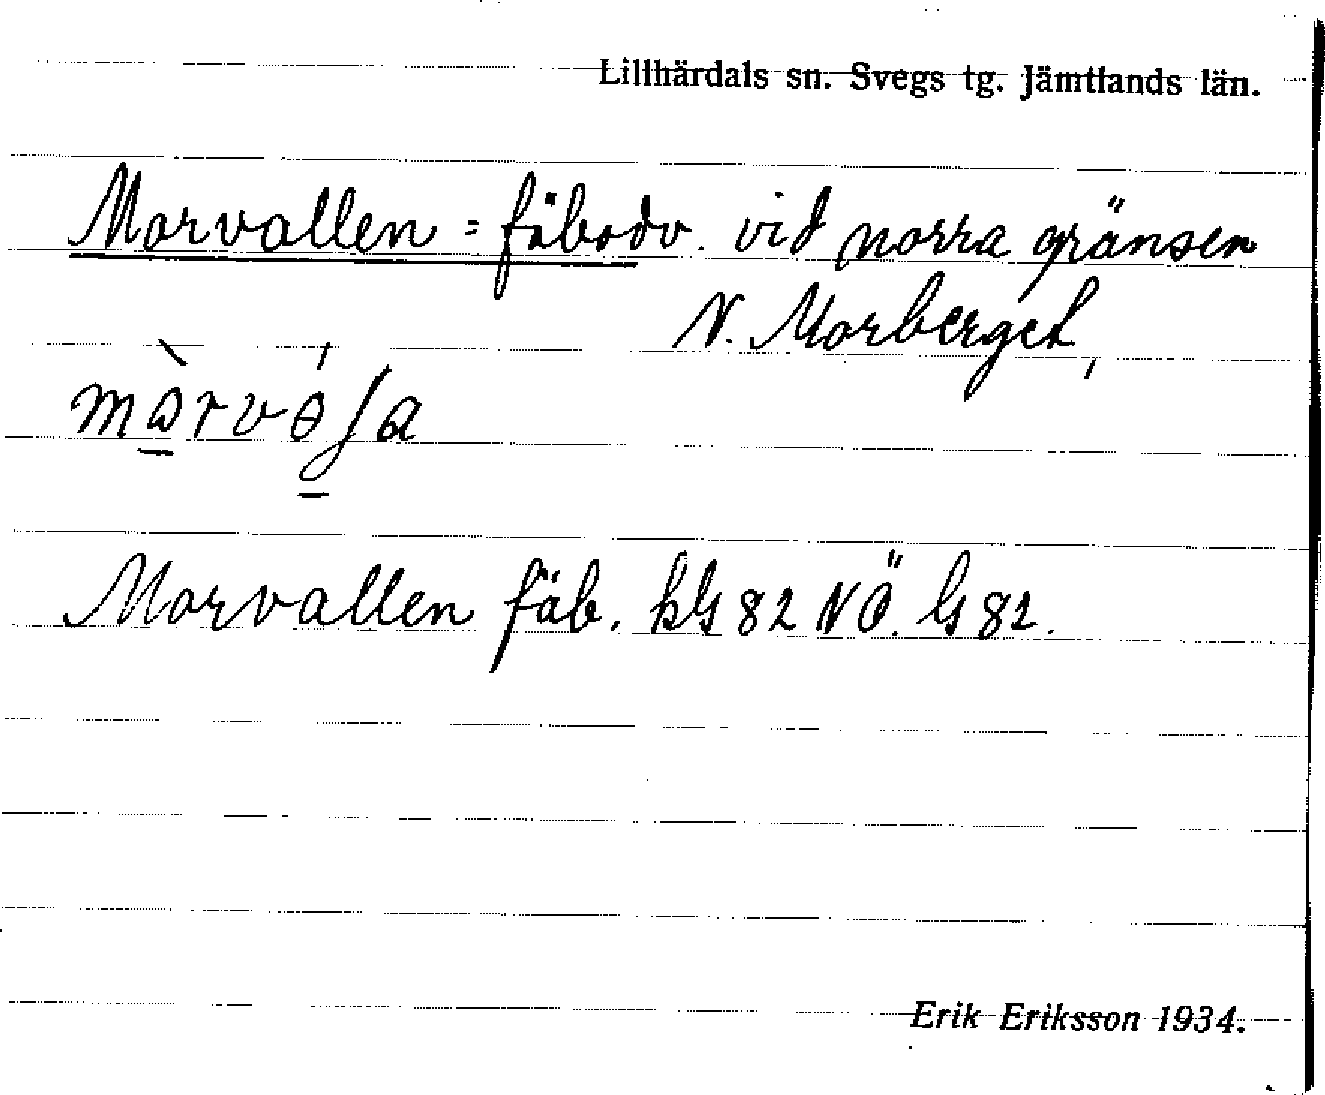 Lillhärdals sn. Svegs tg. Jämtlands län.
Morvallen = fäbodv. vid norra gränsen
N. Morberget,
Morvallen fäb. hG 82 NÖ. G 82.
Erik Eriksson 1934.